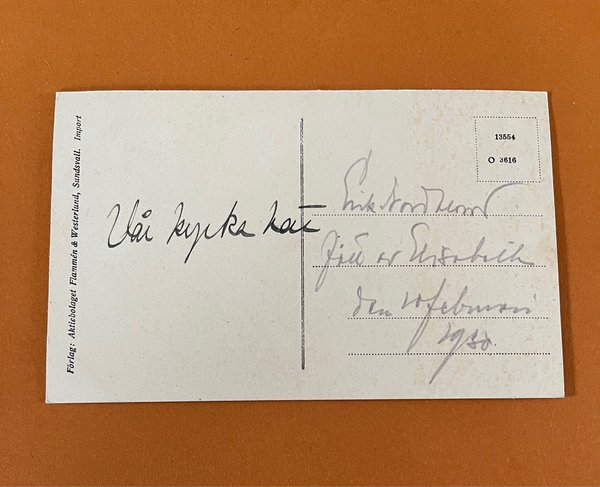 Förlag: Aktiebolaget Flammén & Westerlund, Sundsvall. Import
Vår kyrka
13554
O 3616
Erik
av Elisabeth
den 10 februari
1930